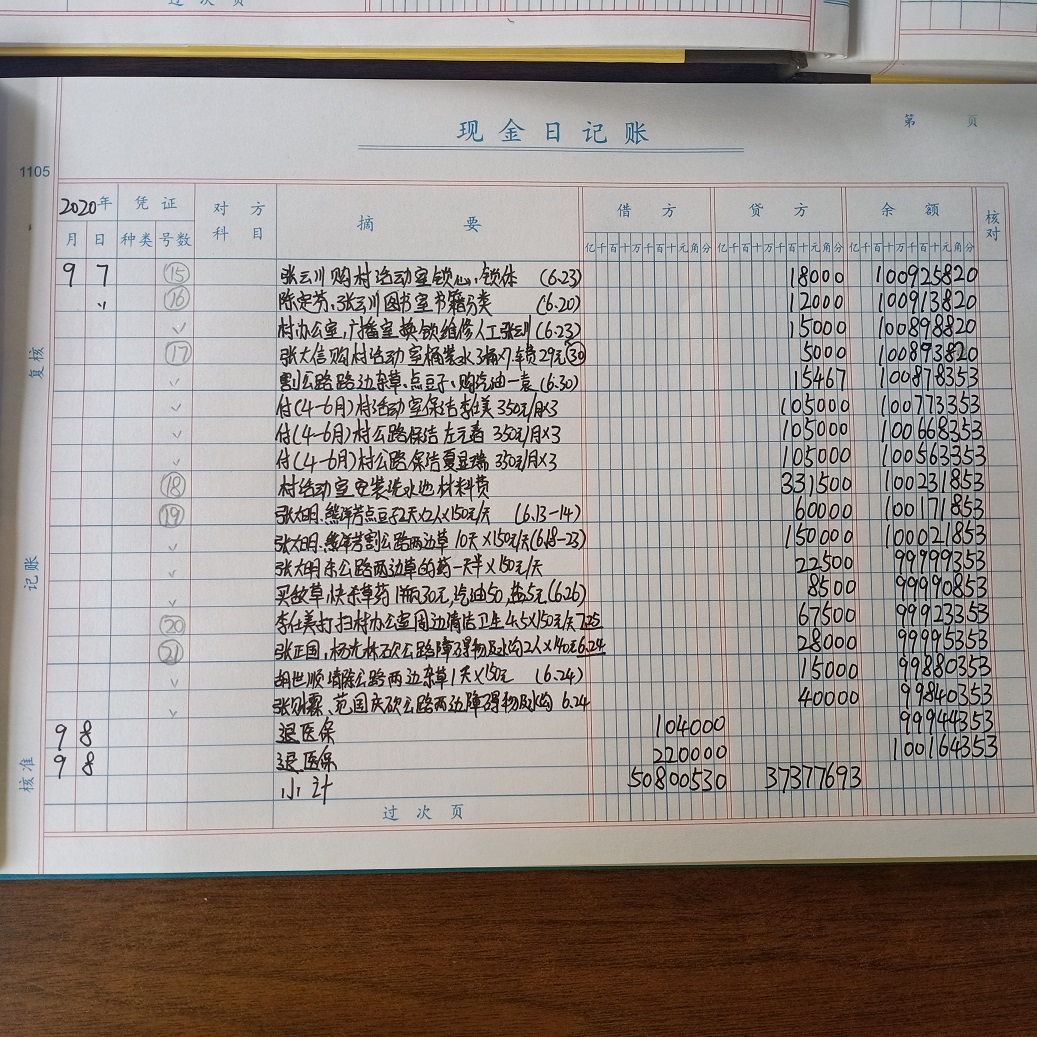 过 次 页
现金日记账
第 页
1105
2020年 凭证 对方科目 摘要 借方 贷方 余额 核对
月 日 种类 号数 亿千百十万千百十元角分 亿千百十万千百十元角分 亿千百十万千百十元角分
9 7 15 张云川购村活动室锁心、锁体 (6.23) 18000 100925820
〃 16 陈定芬、张云川图书室书籍分类 (6.20) 12000 100913820
✓ 村办公室,广播室换锁维修人工张云川 (6.23) 15000 100898820
17 张大信购村活动室桶装水3桶 车费29元 30 5000 100893820
✓ 割公路路边杂草、点豆子、购汽油一袁 (6.30) 15467 100878353
✓ 付(4-6月)村活动室保洁李仕美 350元/月×3 105000 100773353
✓ 付(4-6月)村公路保洁左元春 350元/月×3 105000 100668353
✓ 付(4-6月)村公路保洁夏显瑞 350元/月×3 105000 100563353
18 村活动室安装洗水池材料费 331500 100231853
19 张大明、熊祥芳点豆子2天×2人×150元/天 (6.13-14) 60000 100171853
✓ 张大明、熊祥芳割公路两边草 10天×150元/天(6.18-23) 150000 100021853
✓ 张大明杀公路两边草的药一天半×150元/天 22500 99999353
✓ 买敌草快杀草药1瓶30元,汽油50,盐5元(6.26) 8500 99990853
20 李仕美打扫村办公室周边清洁卫生4.5×150元/天 7.25 67500 99923353
21 张正国、杨光林砍公路障碍物及水沟2人×140元6.24 28000 99995353
✓ 胡世顺清除公路两边杂草1天×150元 (6.24) 15000 99880353
✓ 张 、范国庆砍公路两边障碍物及水沟 6.24 40000 99840353
9 8 退医保 104000 99944353
9 8 退医保 220000 100164353
小计 50800530 37377693
过 次 页
复核
记账
核准